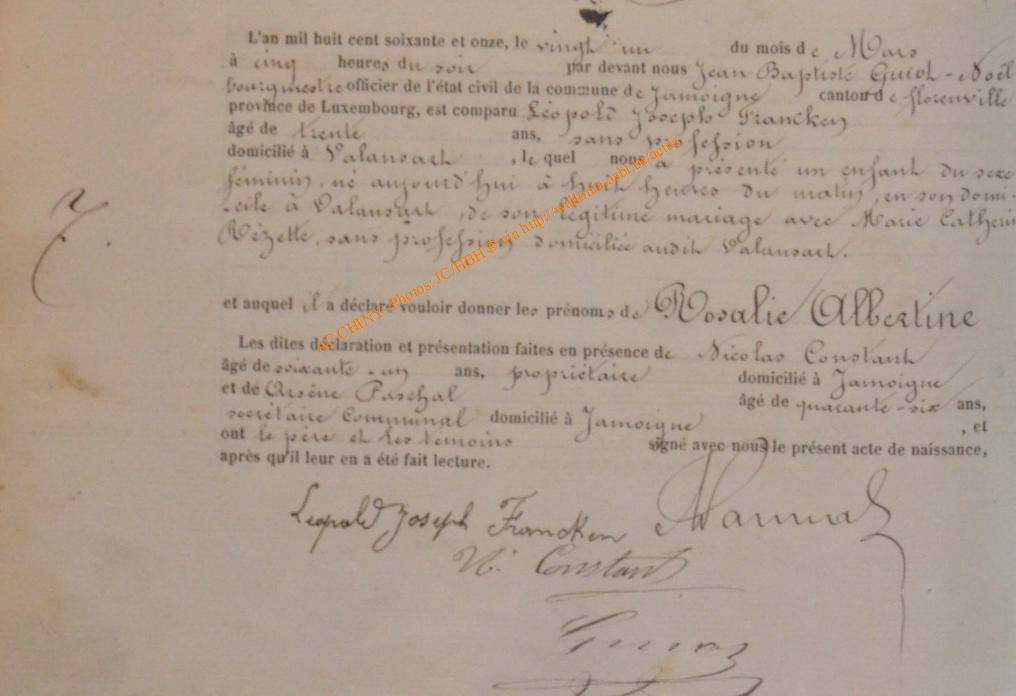 L'an mil huit cent soixante et onze, le vingt un du mois de Mars
à cinq heures du soir par devant nous Jean Baptiste Guiot-Noël
bourgmestre officier de l'état civil de la commune de Jamoigne canton de florenville
province de Luxembourg, est comparu Léopold Joseph Francken
âgé de trente ans, sans profession
domicilié à Valansart, le quel nous a présenté un enfant du sexe
féminin, né aujourd'hui à huit heures du matin, en son domi-
-cile à Valansart, de son légitime mariage avec Marie Catherin
Rézette, sans profession domiciliée audit Valansart.
7.
et auquel il a déclaré vouloir donner les prénoms de Rosalie Albertine
Les dites déclaration et présentation faites en présence de Nicolas Constant
âgé de soixante-un ans, propriétaire domicilié à Jamoigne
et de Arsène Paschal âgé de quarante-six ans,
secrétaire Communal domicilié à Jamoigne, et
ont le père et les témoins signé avec nous le présent acte de naissance,
après qu'il leur en a été fait lecture.
Léopold Joseph Francken
N. Constant
AC CHINY - Photos: JC/HBH © via http://